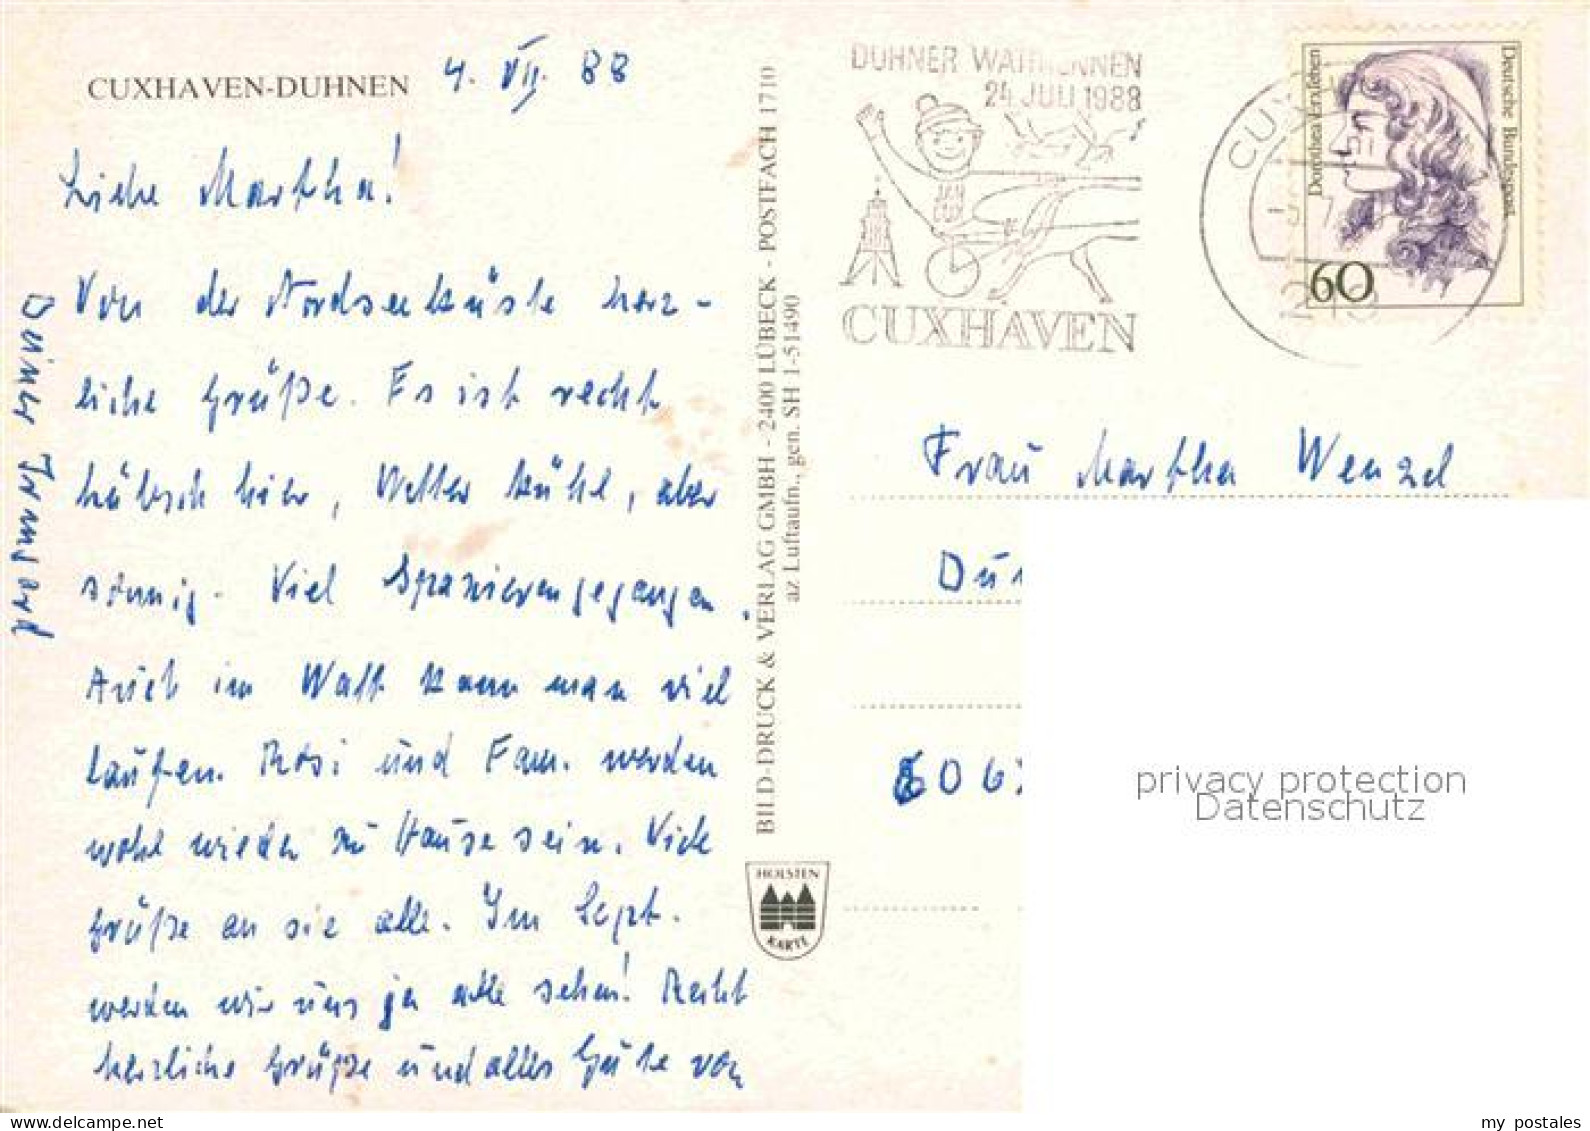 CUXHAVEN-DUHNEN
4. VII. 88
Liebe Martha!
Von der Nordseeküste herz-
liche Grüße. Es ist recht
hübsch hier, Wetter kühl, aber
sonnig. Viel Spazierengegangen.
Auch im Watt kann man viel
laufen. Rosi und Fam. werden
wohl wieder zu Hause sein. Viele
Grüße an sie alle. Im Sept.
werden wir uns ja alle sehen! Recht
herzliche Grüße und alles Gute von
Deiner Irmgard
BILD-DRUCK & VERLAG GMBH - 2400 LÜBECK - POSTFACH 1710
az Luftaufn., gen. SH 1-51490
HOLSTEN
KARTE
DUHNER WATTRENNEN
24. JULI 1988
JAN
CUX
CUXHAVEN
Dorothea Erxleben
Deutsche Bundespost
60
Frau Martha Wenzel
privacy protection
Datenschutz
my postales